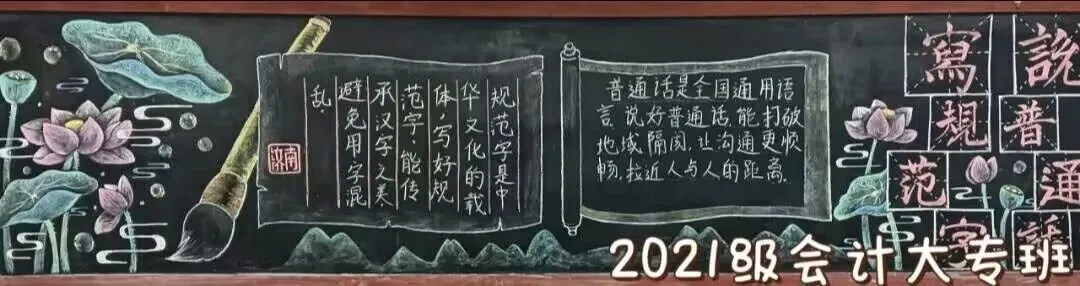 规范字是中
华文化的载
体,写好规
范字,能传
承汉字之美
避免用字混
乱.
普通话是全国通用语
言,说好普通话,能打破
地域隔阂,让沟通更顺
畅,拉近人与人的距离.
説普通話
寫規范字
2021级会计大专班